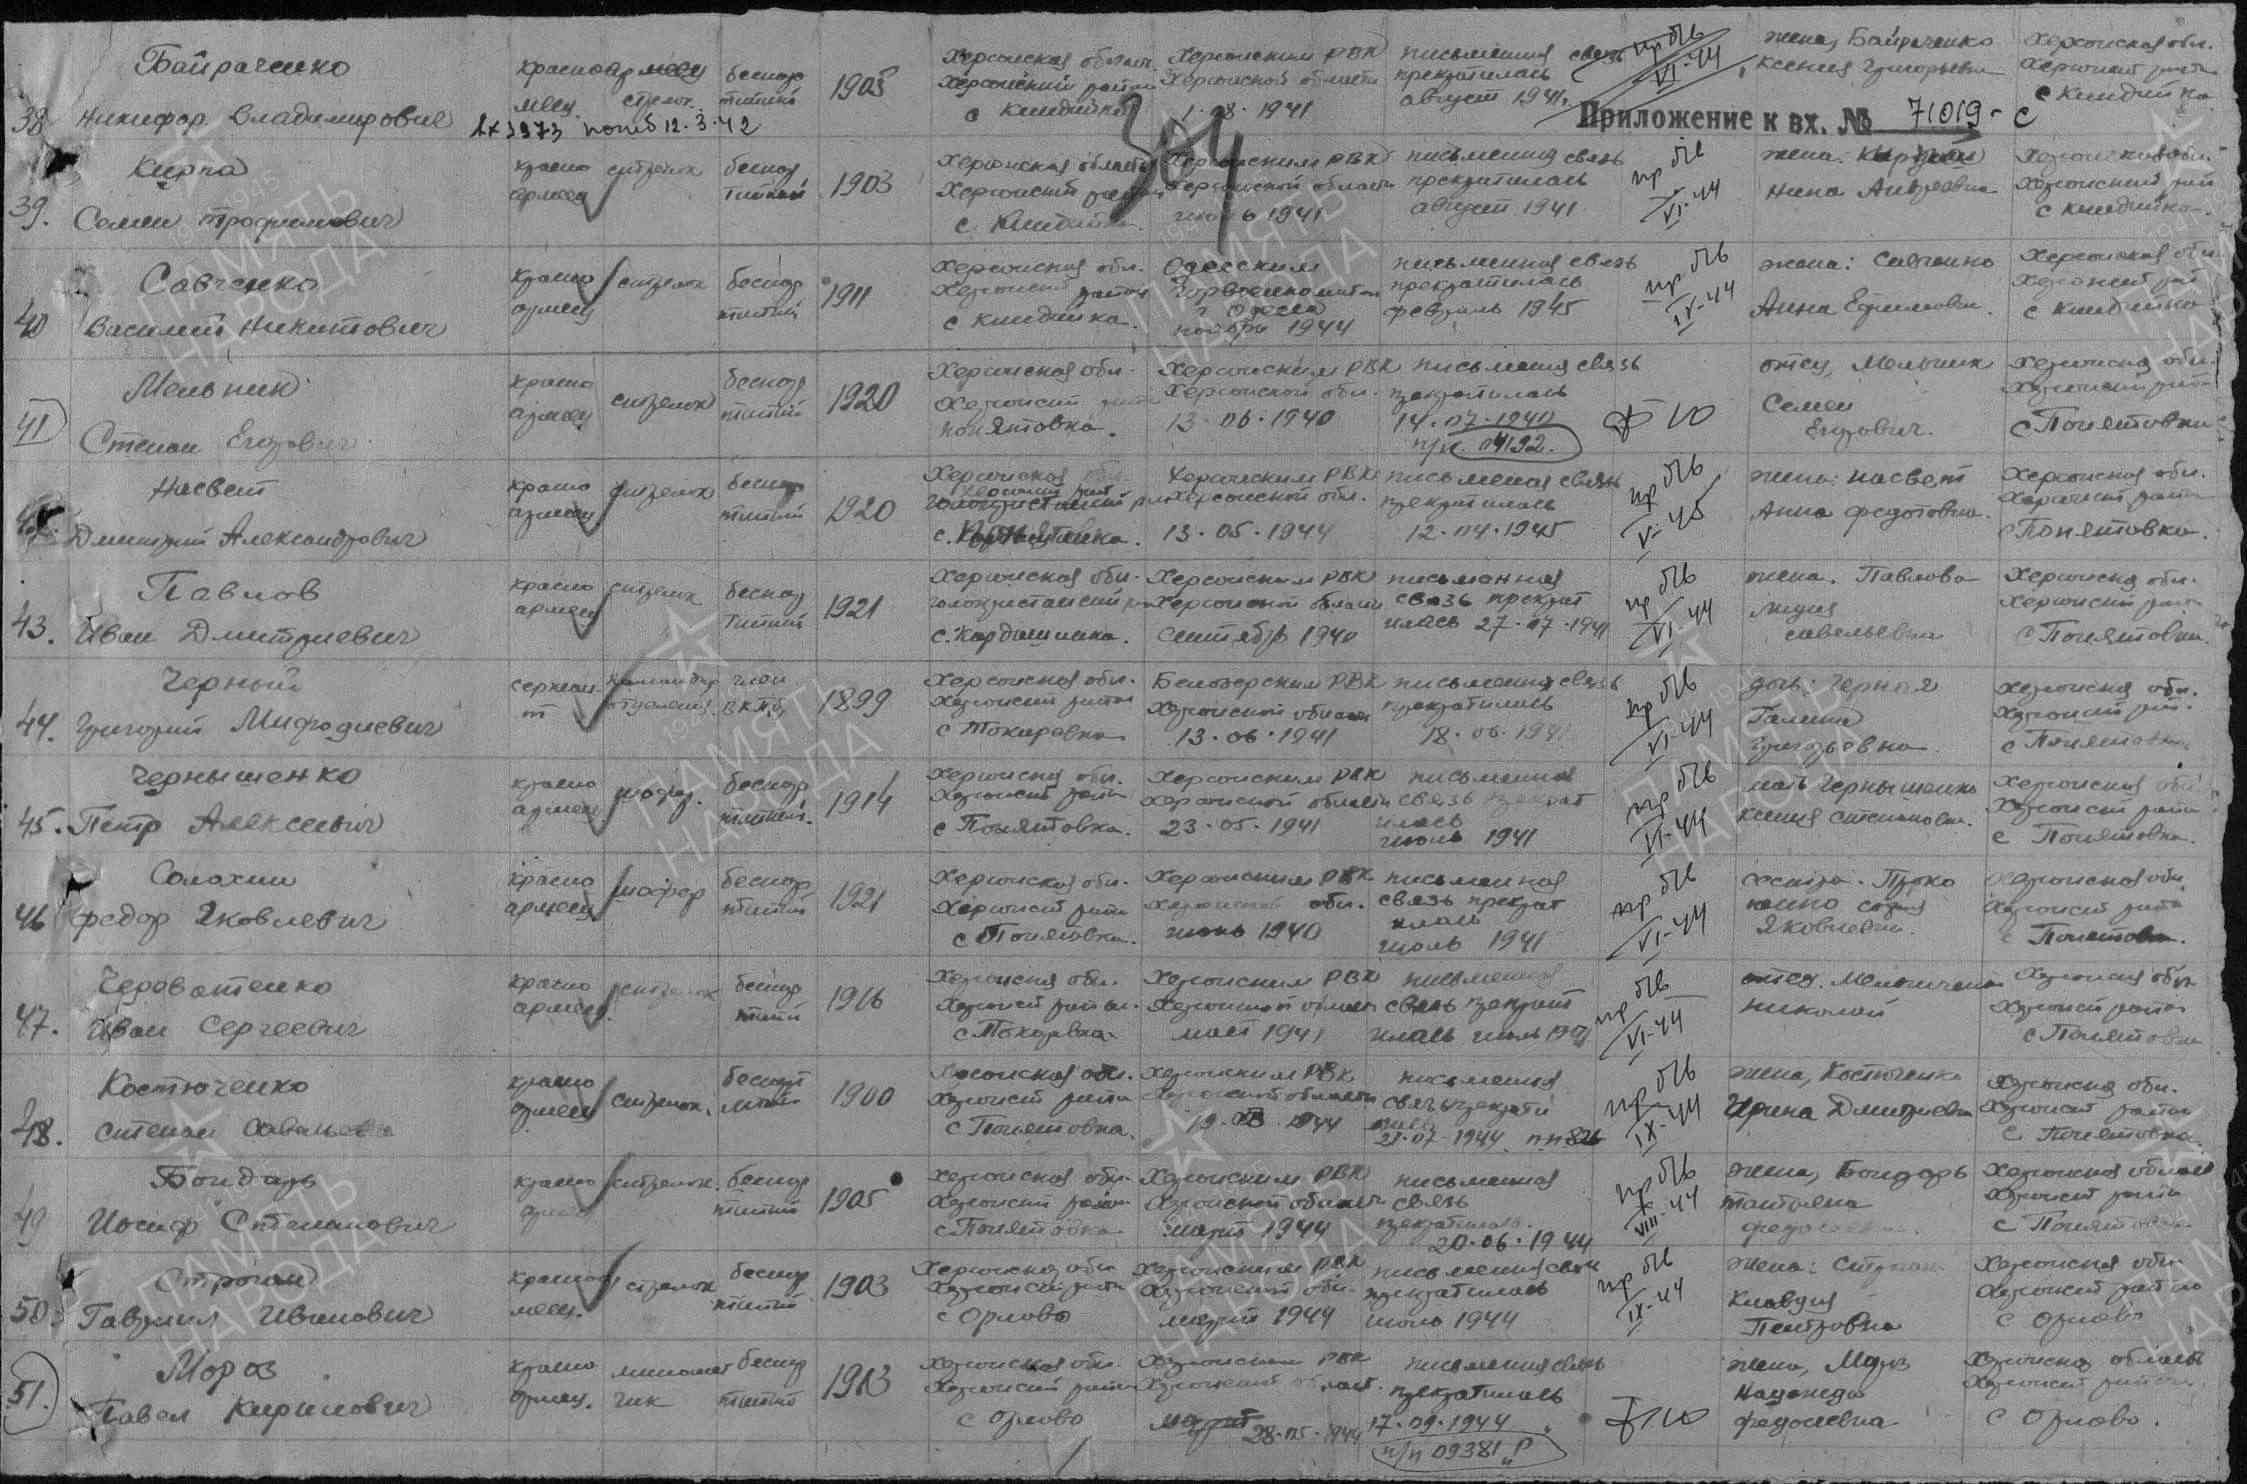 38
Байраченко
Никифор Владимирович
красноармеец
стрелок
вх 3973 погиб 12.3.42
беспар
тийный
1905
Херсонская област
Херсонский район
с Киндийка
Херсонским РВК
Херсонской области
1.08.1941
письменная связь
прекратилась
август 1941.
пр б/в
VI-44
жена, Байраченко
Ксения Григорьевна
Херсонская обл.
Херсонский район
с Киндийка
304
Приложение к вх. № 71019-с
39.
Кирпа
Семен Трофимович
красно
армеец
стрелок
беспар
тийный
1903
Херсонская область
Херсонский район
с. Киндийка
Херсонским РВК
Херсонской области
1941
письменная связь
прекратилась
август 1941
пр б/в
VI-44
жена:
Нина Андреевна
Херсонская обл.
Херсонский рай
с Киндийка.
40
Савченко
Василий Никитович
красно
армеец
стрелок
беспар
тийный
1911
Херсонская обл.
Херсонский район
с Киндийка.
Одесским
Горвоенкоматом
г Одесса
ноябрь 1944
письменная связь
прекратилась
февраль 1945
пр б/в
IV-44
жена: Савченко
Анна Ефимовна.
Херсонская обл.
Херсонский рай
с Киндийка
41
Мельник
Степан Егорович
красно
армеец
стрелок
беспар
тийный
1920
Херсонская обл.
Херсонский район
Понятовка.
Херсонским РВК
Херсонской обл.
13.06.1940
письменная связь
прекратилась
14.07.1940
п/я. 04192.
Ф 10
отец, Мельник
Семен
Егорович.
Херсонская обл.
Херсонский район
с Понятовка
Насвет
Дмитрий Александрович
красно
армеец
стрелок
беспар
тийный
1920
Херсонская обл.
Херсонский рай
Голопристанский р-н
с.
Херсонским РВК
Херсонской обл.
13.05.1944
письменая связь
прекратилась
12.04.1945
пр б/в
V-45
жена: Насвет
Анна Федотовна.
Херсонская обл.
Херсонский район
с Понятовка.
43.
Павлов
Иван Дмитриевич
красно
армеец
стрелок
беспар
тийный
1921
Херсонская обл.
Голопристанский р-н
с. Кардашинка.
Херсонским РВК
Херсонской области
сентябрь 1940
письменная
связь прекрат
илась 27.07.1941
пр б/в
VI-44
жена. Павлова
Лидия
савельевна
Херсонская обл.
Херсонский район
с Понятовка.
44.
Черный
Григорий Мифодиевич
сержан
т
командир
отделения
член
ВКПб
1899
Херсонская обл.
Херсонский район
с Токаревка
Белозерским РВК
Херсонской области
13.06.1941
письменная связь
прекратилась
18.06.1941
пр б/в
VI-44
дочь: Черная
Галина
Григорьевна
Херсонская обл.
Херсонский рай.
с Понятовка
45.
Чернышенко
Петр Алексеевич
красно
армеец
шофер.
беспар
тийный.
1914
Херсонская обл.
Херсонский район
с Понятовка.
Херсонским РВК
Херсонской области
23.05.1941
письменная
связь прекрат
илась
июль 1941
пр б/в
VI-44
мать Чернышенко
Ксения Степановна.
Херсонская обл
Херсонский район
с Понятовка.
46
Солохин
Федор Яковлевич
красно
армеец
шофер
беспар
тийный
1921
Херсонская обл.
Херсонский район
с Понятовка.
Херсонским РВК
Херсонской обл.
июнь 1940
письменная
связь прекрат
илась
июль 1941
пр б/в
VI-44
сестра. Проко
пенко София
Яковлевна.
Херсонская обл
Херсонский район
с Понятовка.
47.
Череватенко
Иван Сергеевич
красно
армеец.
стрелок
беспар
тийн
1916
Херсонская обл.
Херсонский район.
с Токаревка
Херсонским РВК
Херсонской област
май 1941
письменная
связь прекрат
илась июль 1941
пр б/в
VI-44
отец.
Николай
Херсонская обл
Херсонский район
с Понятовка
48.
Костюченко
Степан Савельев
красно
армеец
стрелок.
беспар
тийный
1900
Херсонская обл.
Херсонский район
с Понятовка.
Херсонским РВК
Херсонской области
1944
письменная
связь прекрати
лась
21.07.1944
пр б/в
IX-44
жена, Костюченко
Ирина Дмитриевна
Херсонская обл.
Херсонский район
с Понятовка.
49
Бондарь
Иосиф Степанович
красно
армеец
стрелок.
беспар
тийный
1905
Херсонская обл.
Херсонский район
с Понятовка
Херсонским РВК
Херсонской области
март 1944
письменная
связь
прекратилась.
20.06.1944
пр б/в
VIII-44
жена, Бондарь
Татьяна
Херсонская область
Херсонский район
с Понятовка
50.
Строган
Гавриил Иванович
красноар
меец.
стрелок
беспар
тийный
1903
Херсонская обл
Херсонский район
с Орлово
Херсонским РВК
Херсонской обл.
март 1944
письменная связь
прекратилась
июль 1944
пр б/в
IX-44
жена: Строган
Клавдия
Петровна
Херсонская обл
Херсонский район
с Орлово
51.
Мороз
Павел Кирилович
красно
армеец.
миномет
чик
беспар
тийный
1913
Херсонская обл.
Херсонский район
с Орлово
Херсонским РВК
Херсонской област.
март
28.05.1944
письменная связь
прекратилась
17.09.1944
п/п 09381 Р
Ф 10
жена, Мороз
Надежда
Федосеевна
Херсонская область
Херсонский район.
с Орлово.